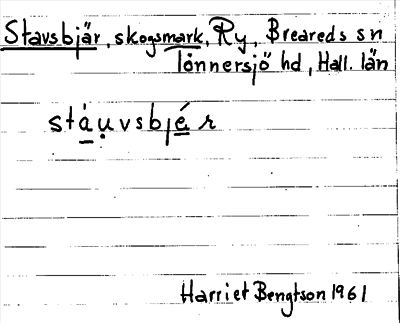 Stavsbjär, skogsmark, Ry, Breareds sn
Tönnersjö hd, Hall. län
stá̱ụvsbjé̱r
Harriet Bengtson 1961